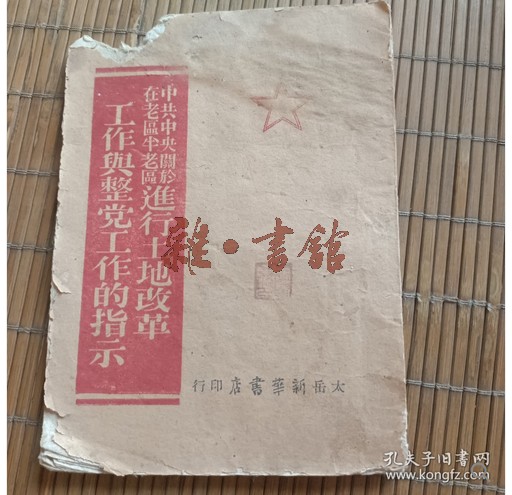 中共中央關於
在老區半老區
進行土地改革
工作與整党工作的指示
雜·書館
太岳新華書店印行
孔夫子旧書网
www.kongfz.com